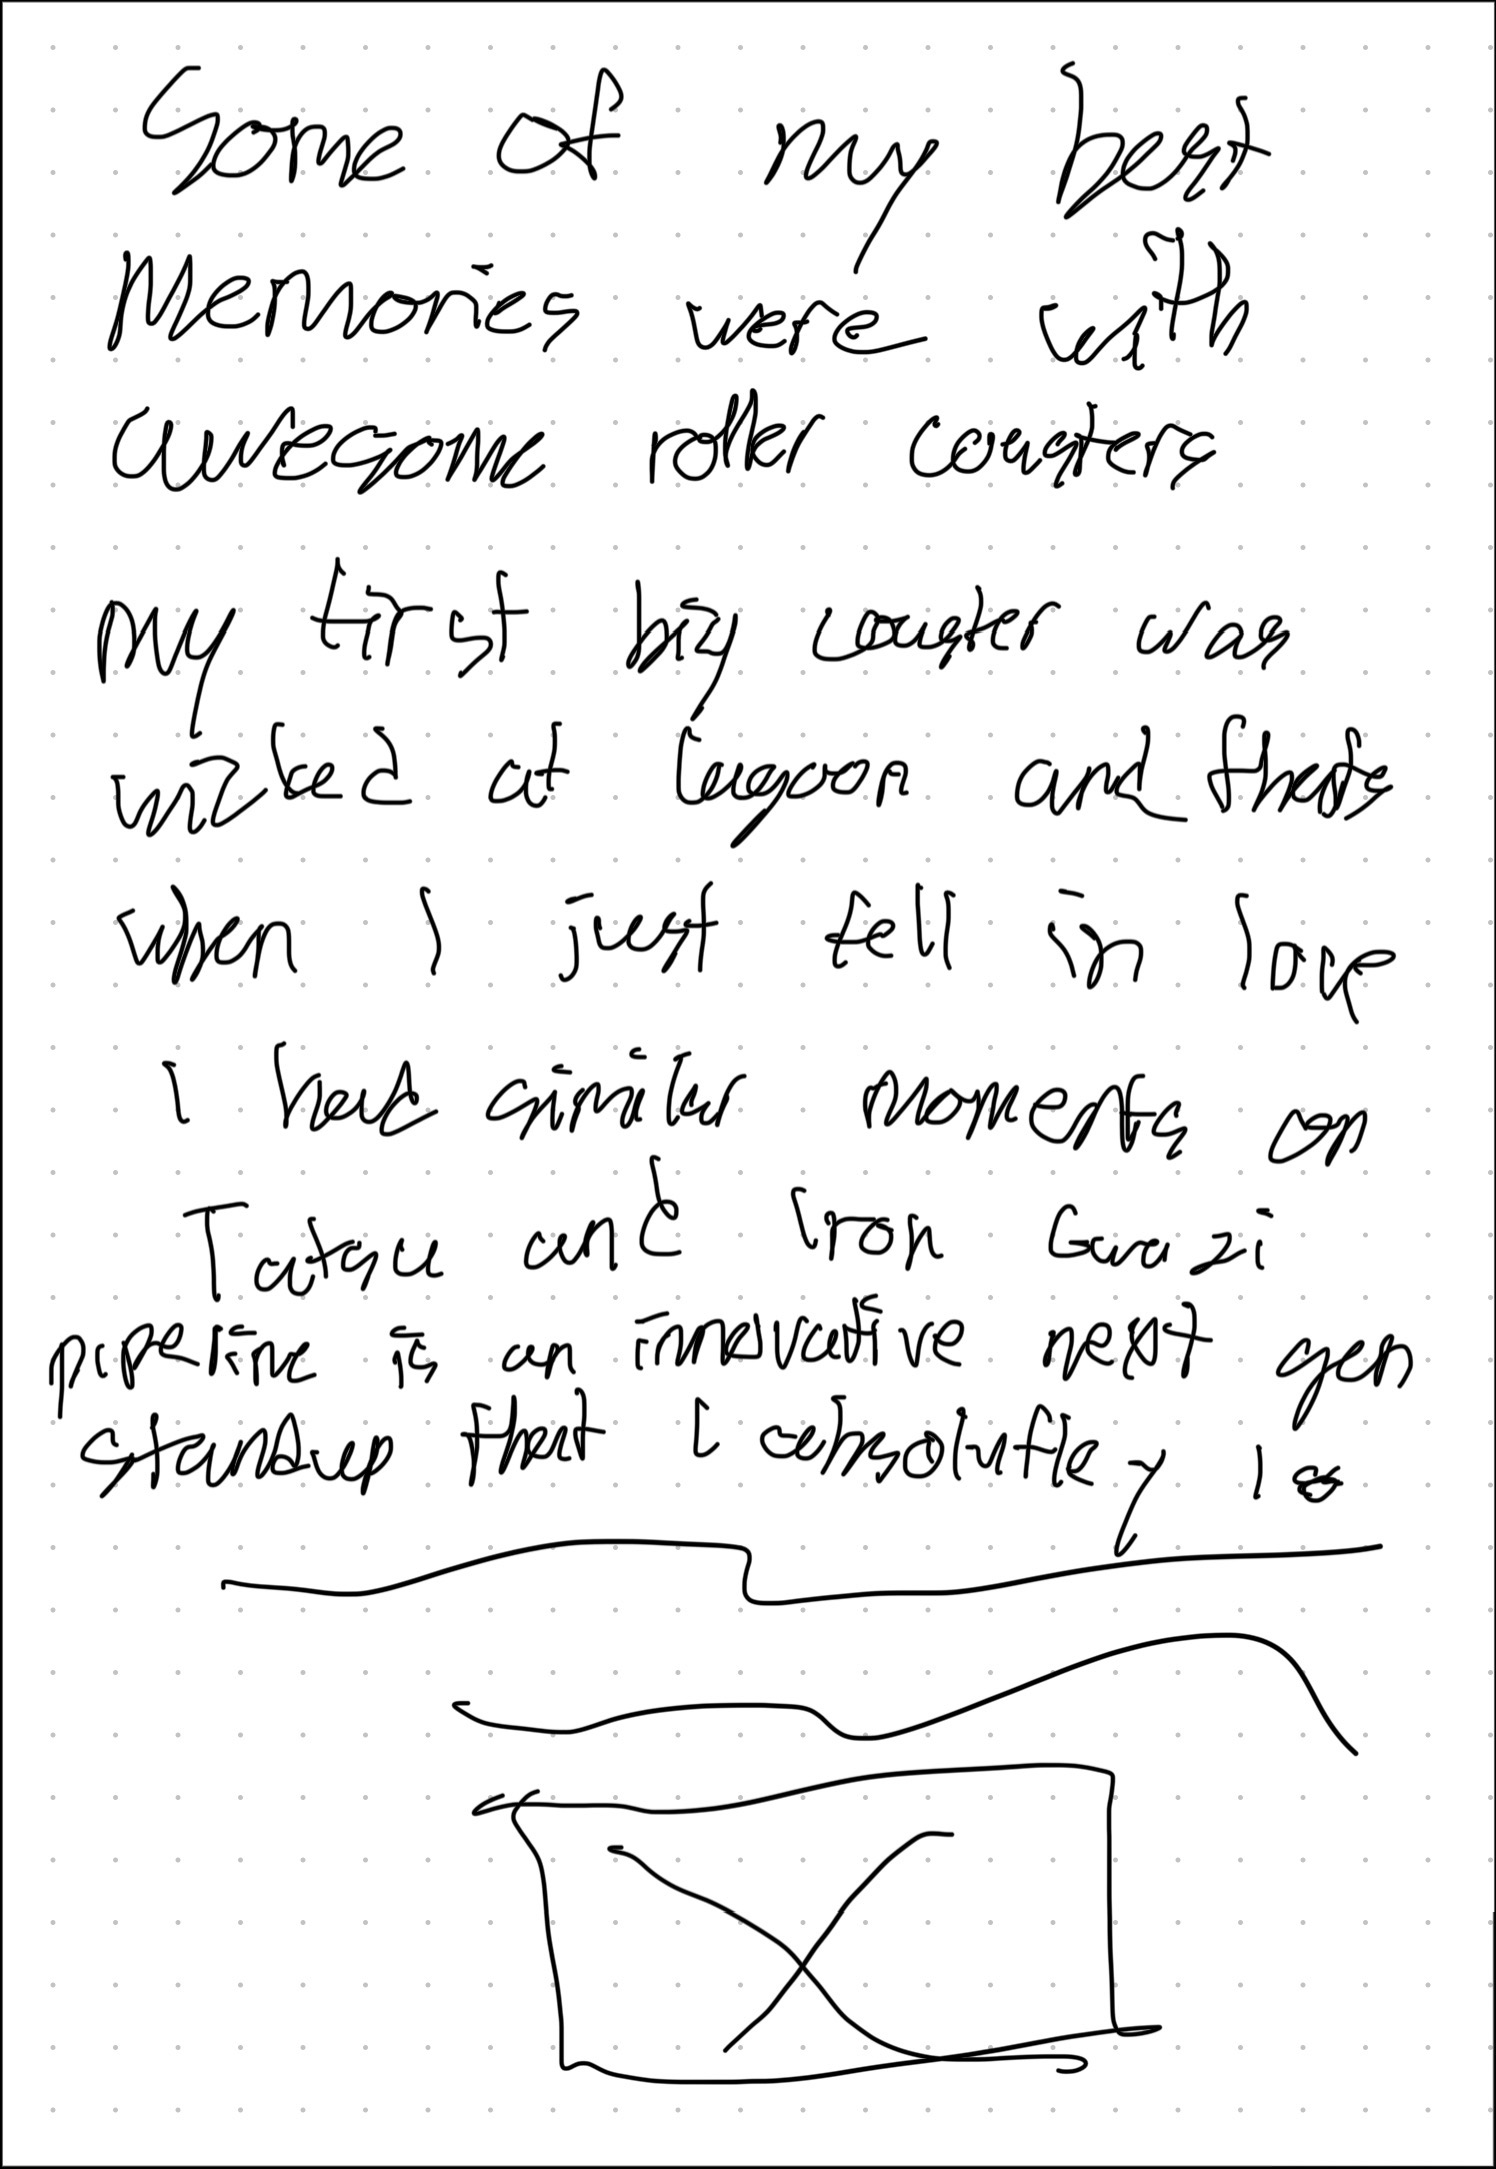 Some of my best
Memories were with
awesome roller coasters
my first big coaster was
wicked at lagoon and thats
when I just fell in love
I had similar moments on
Tatsu and Iron Gwazi
pipeline is an innovative next gen
standup that I absolutley